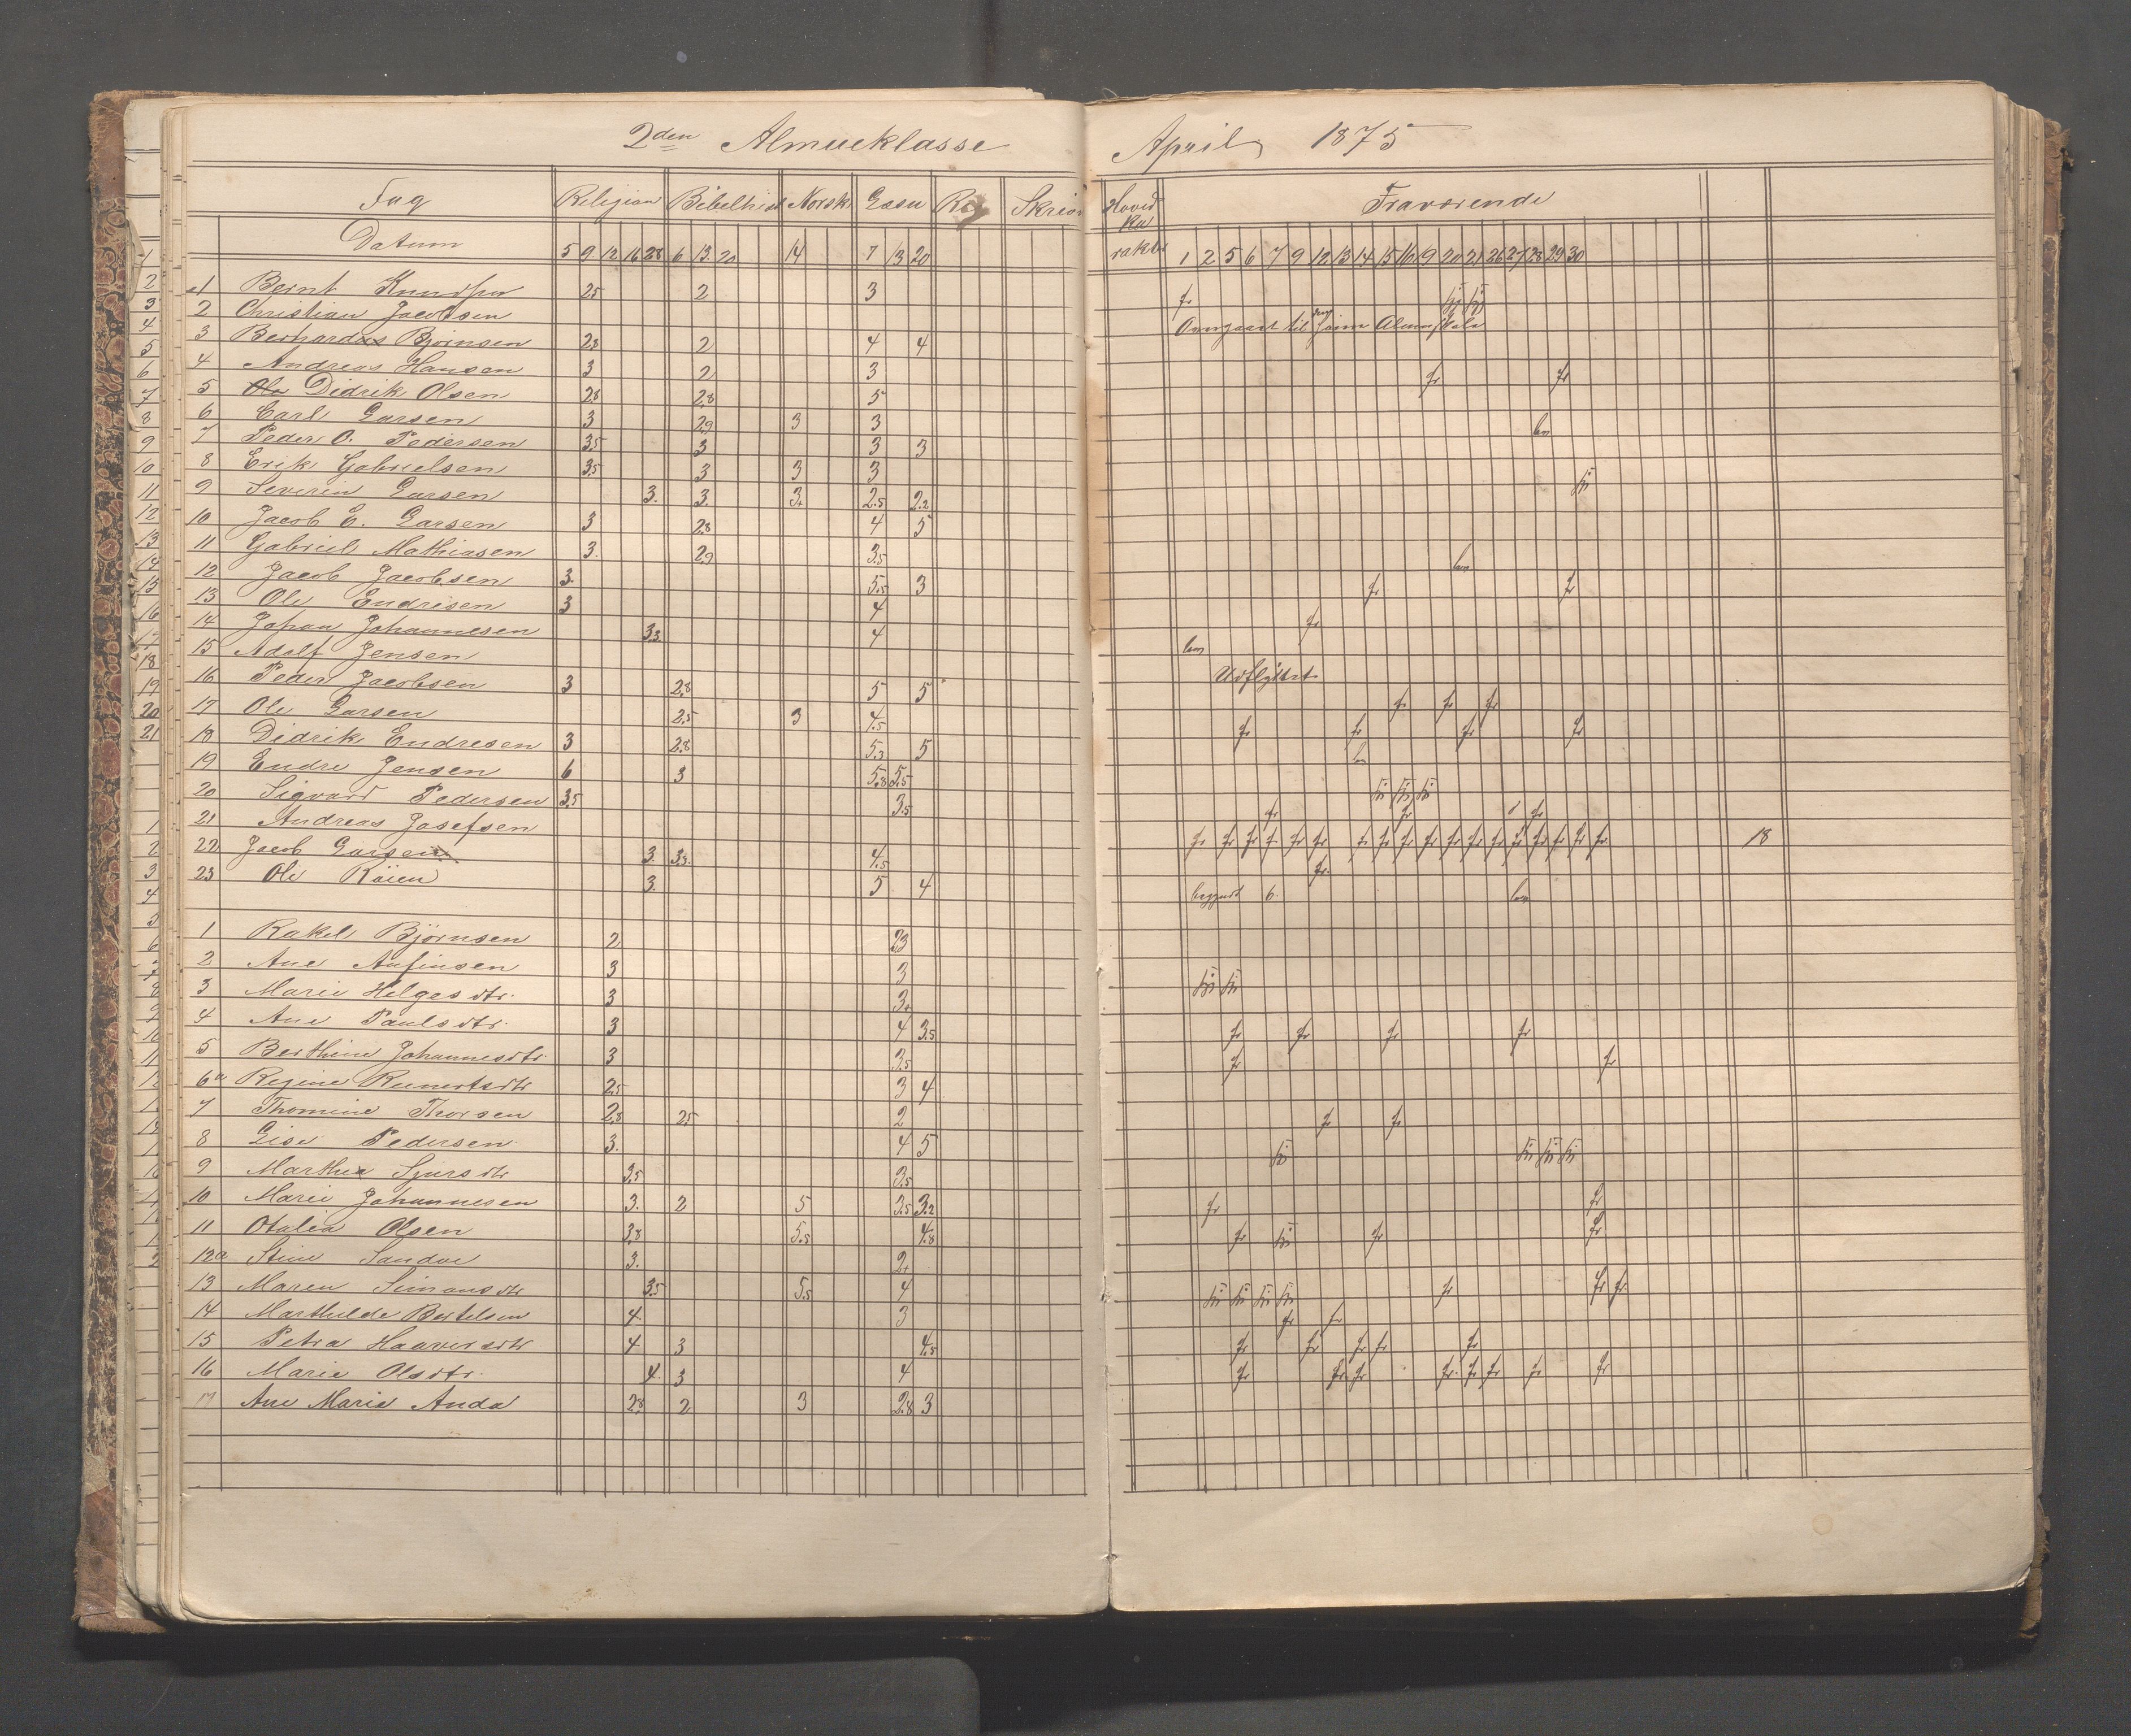 2den Almueklasse April 1875
Fag Religion Bibelhist Norsk Læsn Skrivn Hoved Ka rakter Fraværende
Datum 5 9 12 16 28 6 13 20 14 7 13 20 1 2 5 6 7 9 12 13 14 15 16 19 20 21 26 27 28 29 30
1 Bernt Knudsen 2.5 2 3 fr
2 Christian Jacobsen Almueskole
3 Berhard Bjørnsen 2.8 2 4 4
4 Andreas Hansen 3 2 3 fr fr
5 Ole Didrik Olsen 2.8 2.8 5
6 Carl Larsen 3 2.9 3 3
7 Peder O. Pedersen 3.5 3 3 3
8 Erik Gabrielsen 3.5 3 3 3
9 Severin Larsen 3. 3. 3+ 2.5 2.2
10 Jacob E. Larsen 3 2.8 4 5
11 Gabriel Mathiasen 3. 2.9 3.5
12 Jacob Jacobsen 3. 5.5 3 fr fr
13 Ole Endresen 3 4 fr
14 Johan Johannesen 3.3. 4
15 Adolf Jensen Udflyttet
16 Peder Jacobsen 3 2.8 5 5 fr fr fr
17 Ole Larsen 2.5 3 4.5 fr fr fr fr
18 Didrik Endresen 3 2.8 5.3 5
19 Endre Jensen 6 3 5.8 5.5
20 Sigvard Pedersen 3.5 3.5 fr fr fr
21 Andreas Josefsen fr fr fr fr fr fr fr fr fr fr fr fr fr fr fr fr fr fr 18
22 Jacob Larsen 3. 3.3. 4.5 fr.
23 Ole Röien 3. 5 4 6.
1 Rakel Björnsen 2 2.3
2 Ane Anfinsen 3 3
3 Marie Helgesdtr. 3 3+
4 Ane Paulsdtr. 3 4 3.5 fr fr fr fr
5 Berthine Johannesdtr. 3 3.5 fr fr
6a Regine Reinertsdtr 2.5 3 4
7 Thomine Thorsen 2.8 2.5 2 fr fr
8 Lise Pedersen 3. 4 5
9 Martha Sjursdtr 3.5 3.5
10 Marie Johannesen 3. 2 5 3.5 3.2 fr fr
11 Otalia Olsen 3.8 5.5 4.8 fr fr fr
12a Stine Sandve 3. 2+
13 Maren Simonsdtr 3.5 5.5 4 fr fr fr.
14 Marthilde Bertelsen 4. 3 fr fr
15 Petra Haaversdtr 4 3 4.5 fr fr fr fr fr
16 Marie Olsdtr. 4. 3 4 fr fr fr fr. fr fr fr fr
17 Ane Marie Anda 2.8 2 3 2.8 3